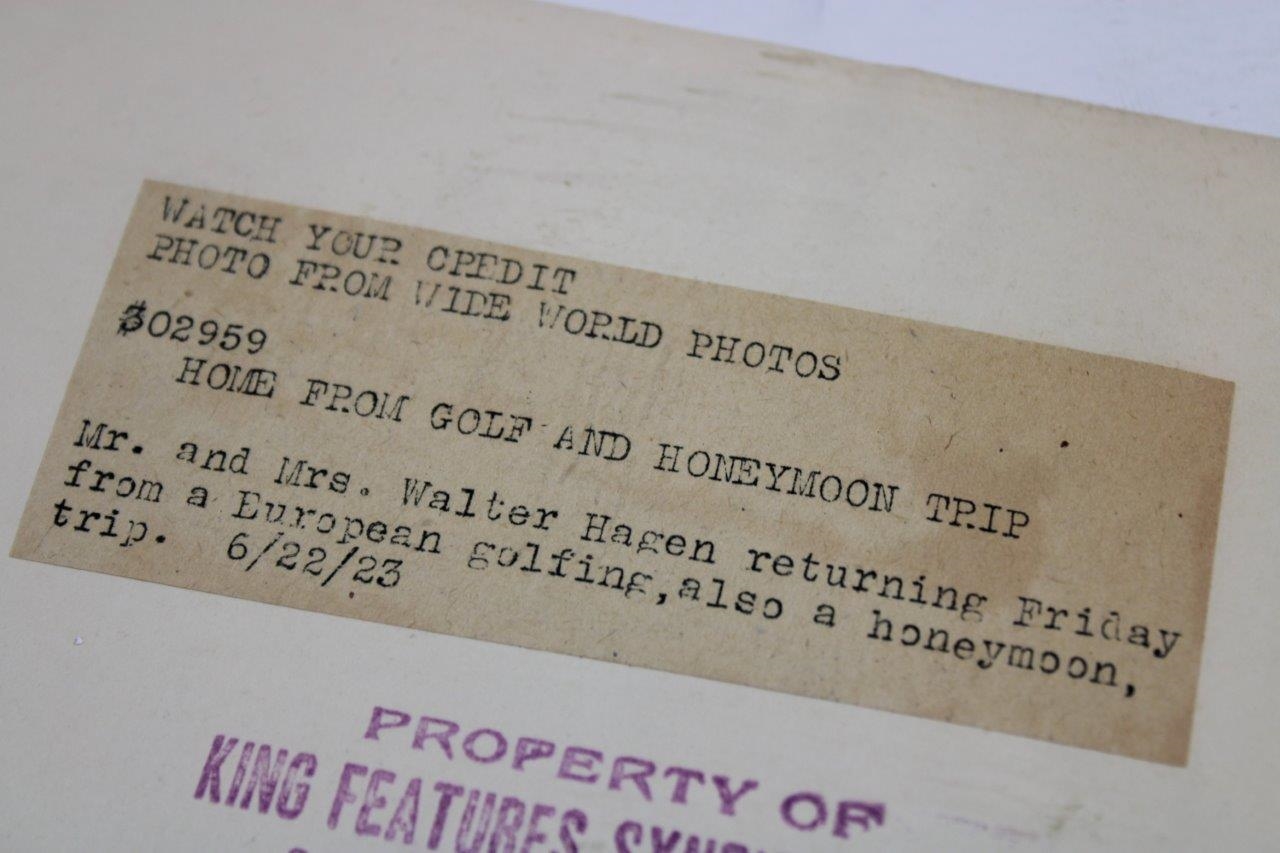 WATCH YOUR CREDIT
PHOTO FROM WIDE WORLD PHOTOS
302959
HOME FROM GOLF AND HONEYMOON TRIP
Mr. and Mrs. Walter Hagen returning Friday
from a European golfing,also a honeymoon,
trip. 6/22/23
PROPERTY OF
KING FEATURES